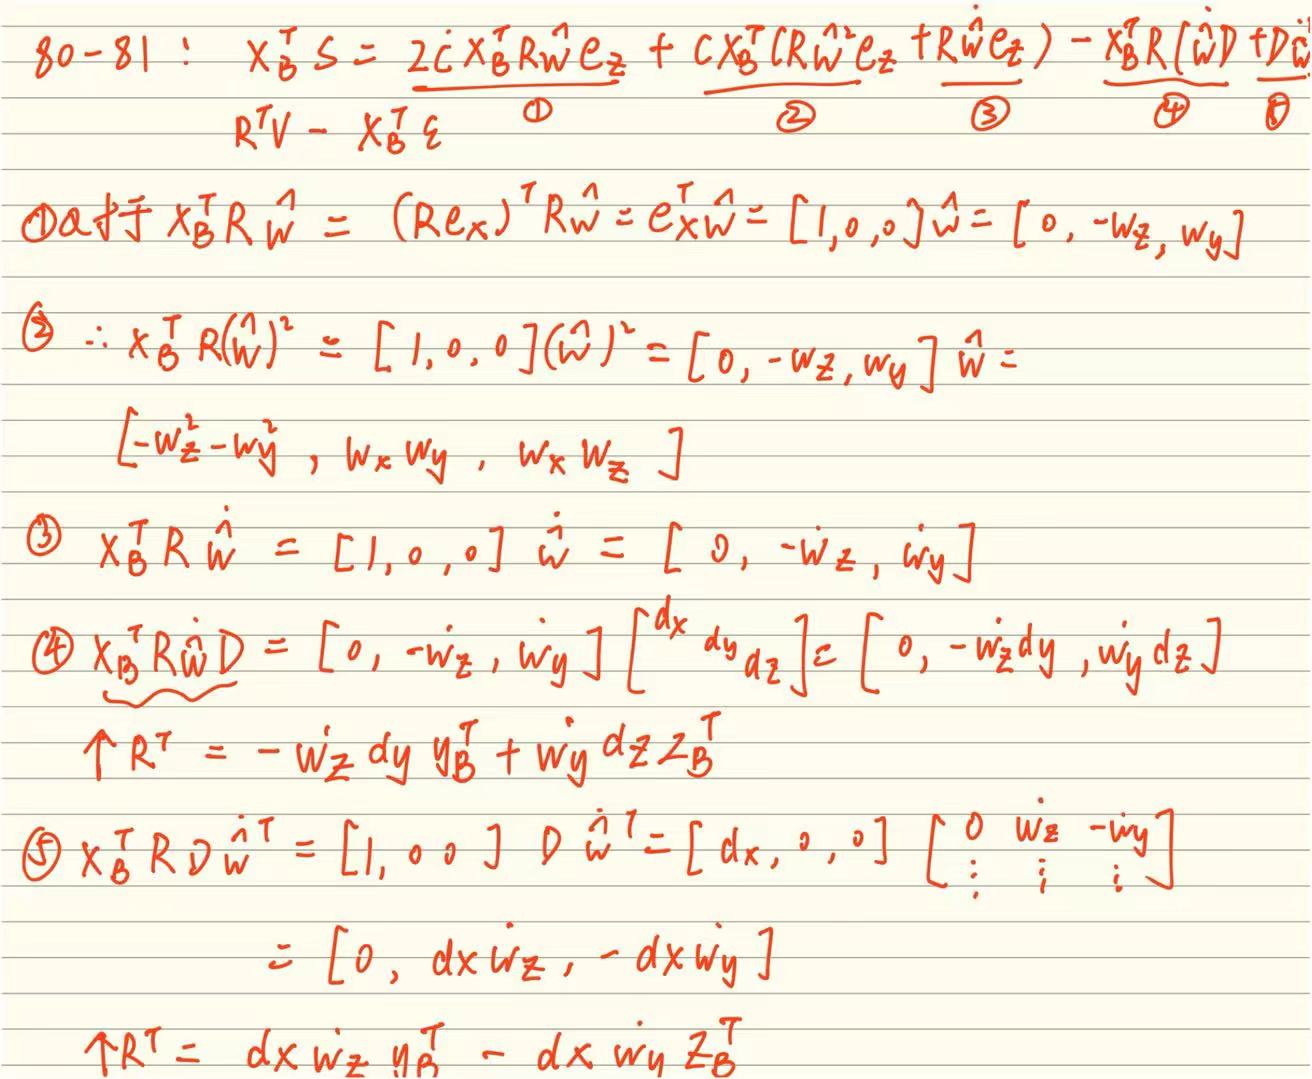 80-81: x_B^T S = 2ċ x_B^T R ŵ e_z + c x_B^T (R ŵ² e_z + R ŵ̇ e_z) - x_B^T R (ŵ̇ D + D ŵ̇
① ② ③ ④ ⑤
R^T V - x_B^T ε
①a 对于 x_B^T R ŵ = (R e_x)^T R ŵ = e_x^T ŵ = [1, 0, 0] ŵ = [0, -w_z, w_y]
② ∴ x_B^T R(ŵ)² = [1, 0, 0](ŵ)² = [0, -w_z, w_y] ŵ =
[-w_z² - w_y², w_x w_y, w_x w_z]
③ x_B^T R ŵ̇ = [1, 0, 0] ŵ̇ = [0, -ẇ_z, ẇ_y]
④ x_B^T R ŵ̇ D = [0, -ẇ_z, ẇ_y] [dx dy dz] = [0, -ẇ_z dy, ẇ_y dz]
↑ R^T = -ẇ_z dy y_B^T + ẇ_y dz z_B^T
⑤ x_B^T R D ŵ̇^T = [1, 0 0] D ŵ̇^T = [dx, 0, 0] [0 ẇ_z -ẇ_y ⋮ ⋮ ⋮]
= [0, dx ẇ_z, -dx ẇ_y]
↑ R^T = dx ẇ_z y_B^T - dx ẇ_y z_B^T